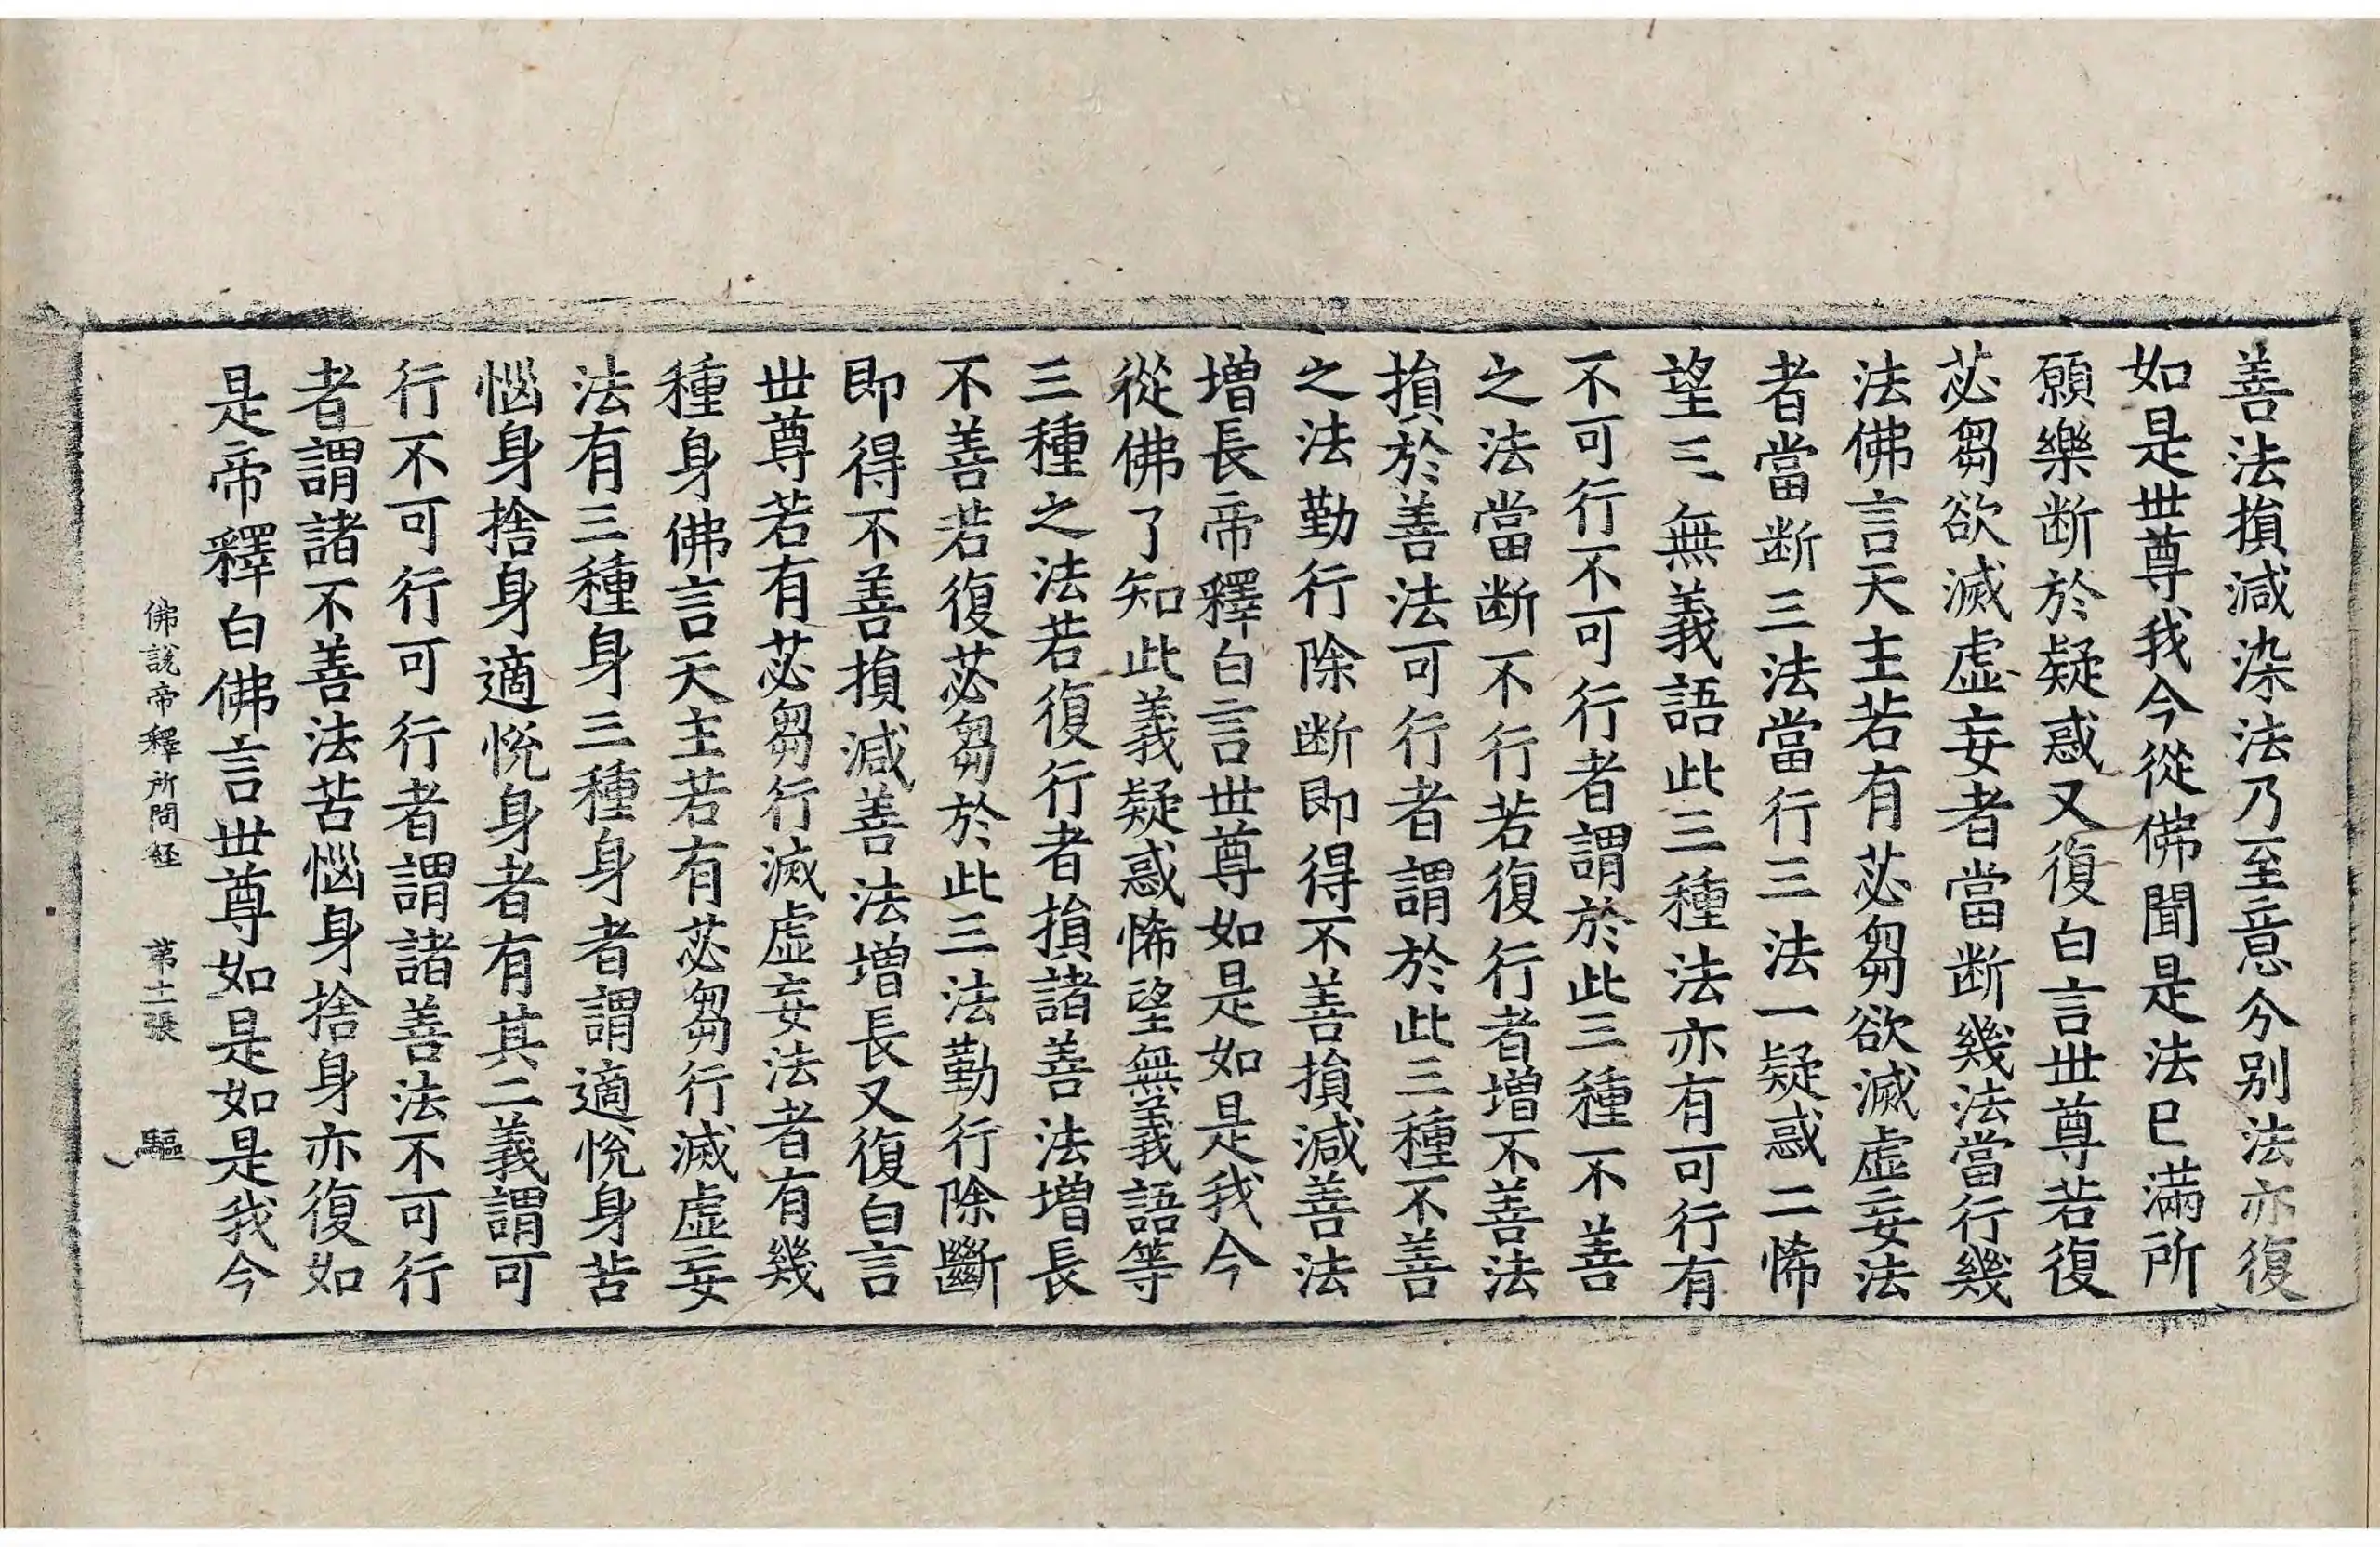 善法損減染法乃至意分别法亦復
如是世尊我今從佛聞是法已滿所
願樂断於疑惑又復白言世尊若復
苾芻欲滅虛妄者當断幾法當行幾
法佛言天主若有苾芻欲滅虛妄法
者當断三法當行三法一疑惑二悕
望三無義語此三種法亦有可行有
不可行不可行者謂於此三種不善
之法當断不行若復行者增不善法
損於善法可行者謂於此三種不善
之法勤行除断即得不善損減善法
增長帝釋白言世尊如是如是我今
從佛了知此義疑惑悕望無義語等
三種之法若復行者損諸善法增長
不善若復苾芻於此三法勤行除斷
即得不善損減善法增長又復白言
世尊若有苾芻行滅虛妄法者有幾
種身佛言天主若有苾芻行滅虛妄
法有三種身三種身者謂適悅身苦
惱身捨身適悅身者有其二義謂可
行不可行可行者謂諸善法不可行
者謂諸不善法苦惱身捨身亦復如
是帝釋白佛言世尊如是如是我今
佛說帝釋所問経 苐十二張 驅